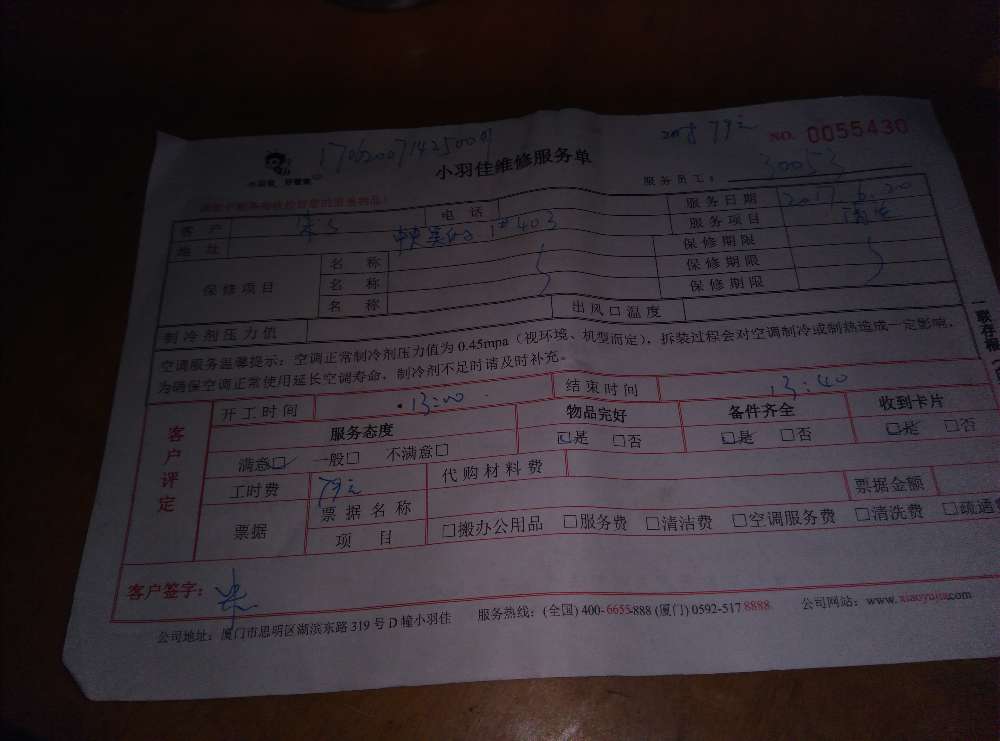 79元 NO. 0055430
小羽佳维修服务单
服务员工: 30053
客户 电话 服务日期 2017.6.20
地址 1#403 服务项目
保修项目 名称 保修期限
名称 保修期限
名称 保修期限
制冷剂压力值 出风口温度
空调服务温馨提示: 空调正常制冷剂压力值为0.45mpa (视环境、机型而定), 拆装过程会对空调制冷或制热造成一定影响,
为确保空调正常使用延长空调寿命, 制冷剂不足时请及时补充。
开工时间 13:00 结束时间 13:40
客户评定
服务态度 物品完好 备件齐全 收到卡片
满意□ 一般□ 不满意□ □是 □否 □是 □否 □是 □否
工时费 79元 代购材料费
票据 票据名称 票据金额
项目 □搬办公用品 □服务费 □清洁费 □空调服务费 □清洗费 □疏通
客户签字: 朱
公司地址: 厦门市思明区湖滨东路319号D幢小羽佳 服务热线: (全国) 400-6655-888 (厦门) 0592-517 8888 公司网站: www.xiaoyujia.com